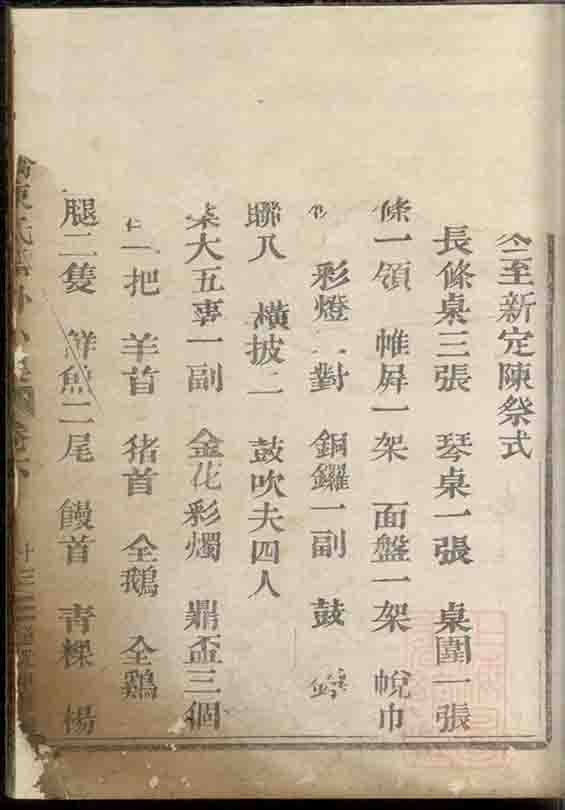 至新定陳祭式
長條桌三張 琴桌一張 桌圍一張
條一領 帷屏一架 面盤一架 帨巾
彩燈二對 銅鑼一副 鼓
聯八 橫披二 鼓吹夫四人
桌大五事一副 金花彩燭 鼎盃三個
一把 羊首 猪首 全鵝 全鷄
腿二隻 鮮魚二尾 饅首 青粿 楊